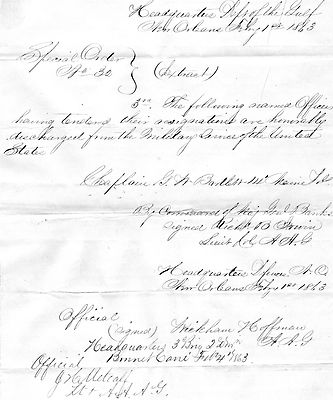 Headquarters Dept of the Gulf
New Orleans Feby 1st 1863
Special Order
No 32
(Extract)
3rd The following named Officers
having tendered their resignations are honorably
discharged from the Military Service of the United
States
Chaplain G. W.
By Command of Maj Genl Banks
signed Richd B Irwin
Lieut Col A A G
Headquarters
New Orleans Feby 1st 1863
Official
(signed) Wickham Hoffman
A. A. G
Headquarters 3
Bonnet Carré Feb 4th 1863.
Official
Metcalf
Lt & A. A. A. G.